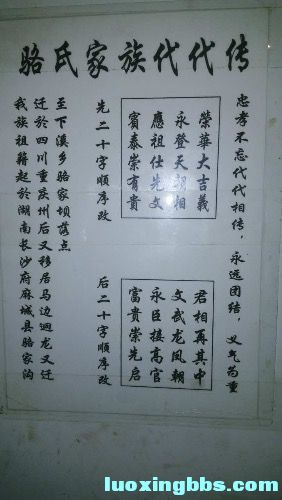 骆氏家族代代传
我族祖籍起於湖南长沙府麻城县骆家沟
迁於四川重庆州后又移居马边迴龙又迁
至下溪乡骆家坝落点
先二十字顺序改
榮華大吉義
永登天朝相
應祖仕先文
賓泰崇有貴
后二十字顺序改
君相再其中
文武龙凤朝
永臣接高官
富貴崇先启
忠孝不忘代代相传，永远团结，义气为重
luoxingbbs.com